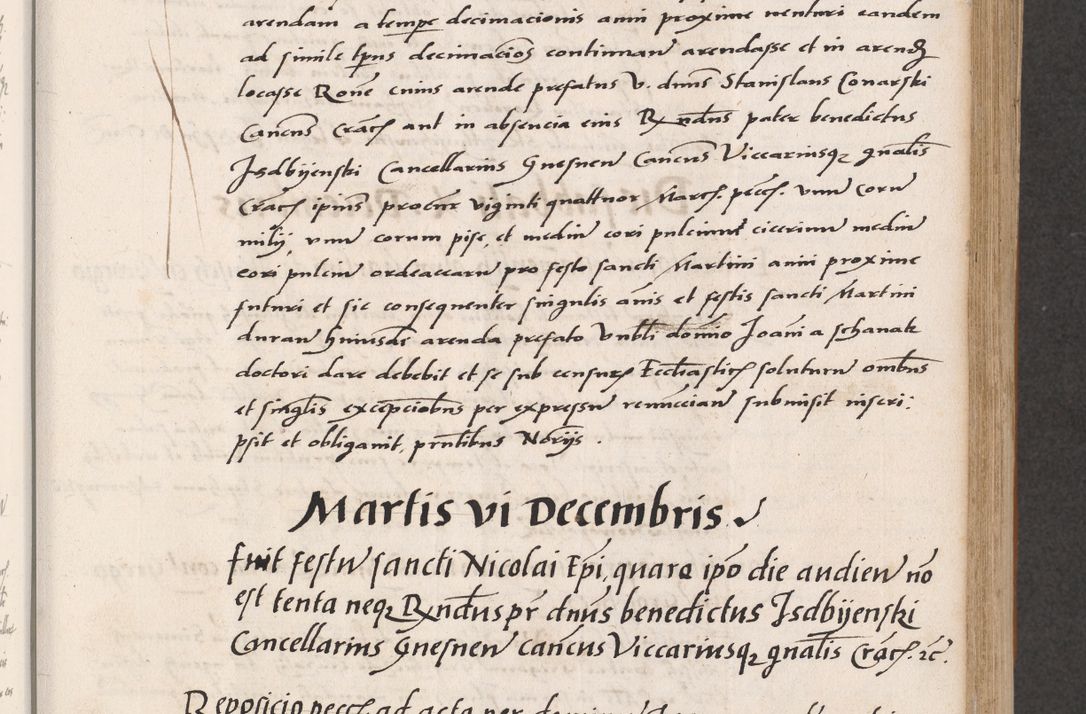 arendam a tempe decimacionis anni proxime venturi eandem
ad simile tpus decimacios continuan arendasse et in arend
locasse Rone cuius arende prefatus V. dnus Stanislaus Conarski
Cancus Crac aut in absencia eius Rx ndus pater benedictus
Jsdbijenski Cancellarius Gnesnen Cancus Viccariusqz gnalis
Crac ipius procur viginti quattuor Marcf. pecc. vnu coru
milij vnu corum pise, et mediu cori pulciuu ciceriuu mediu
cori pulciu ordeaccaru pro festo sancti Martini anni proxime
futuri et sic consequenter singulis anis et festis sancti Martini
duran huiusde arenda prefato Vnbli domino Joani a schanak
doctori dare debebit et se sub censur Eccliastic soluturu ombus
et singlis excepciobus per expressu renuccian submisit inscri:
psit et obligauit, pntibus Norijs .
Martis vi Decembris
fuit festu sancti Nicolai Epi, quare ipo die audien no
est tenta neqz Rxndus pr dnus benedictus Jsdbijenski
Cancellarius Gnesnen cancus Viccariusqz gnalis Crac. zc.
Reposicio pecc ad acta per